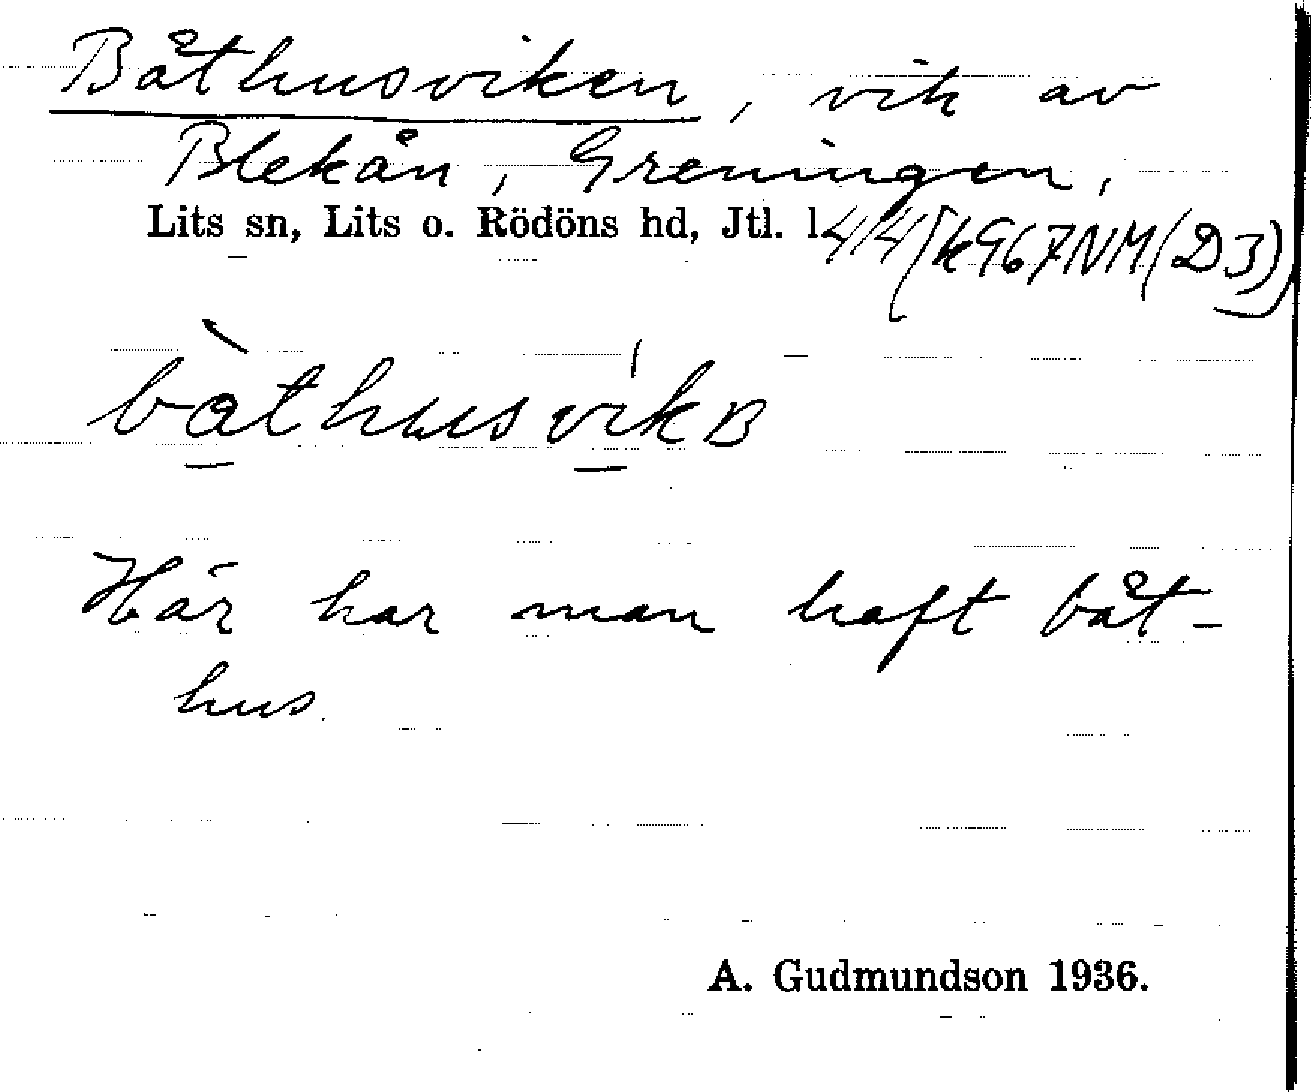 Båthusviken, vik av
Blekån, Greningen,
Lits sn, Lits o. Rödöns hd, Jtl. l.
bàthusvik
Här har man haft båt-
hus.
A. Gudmundson 1936.